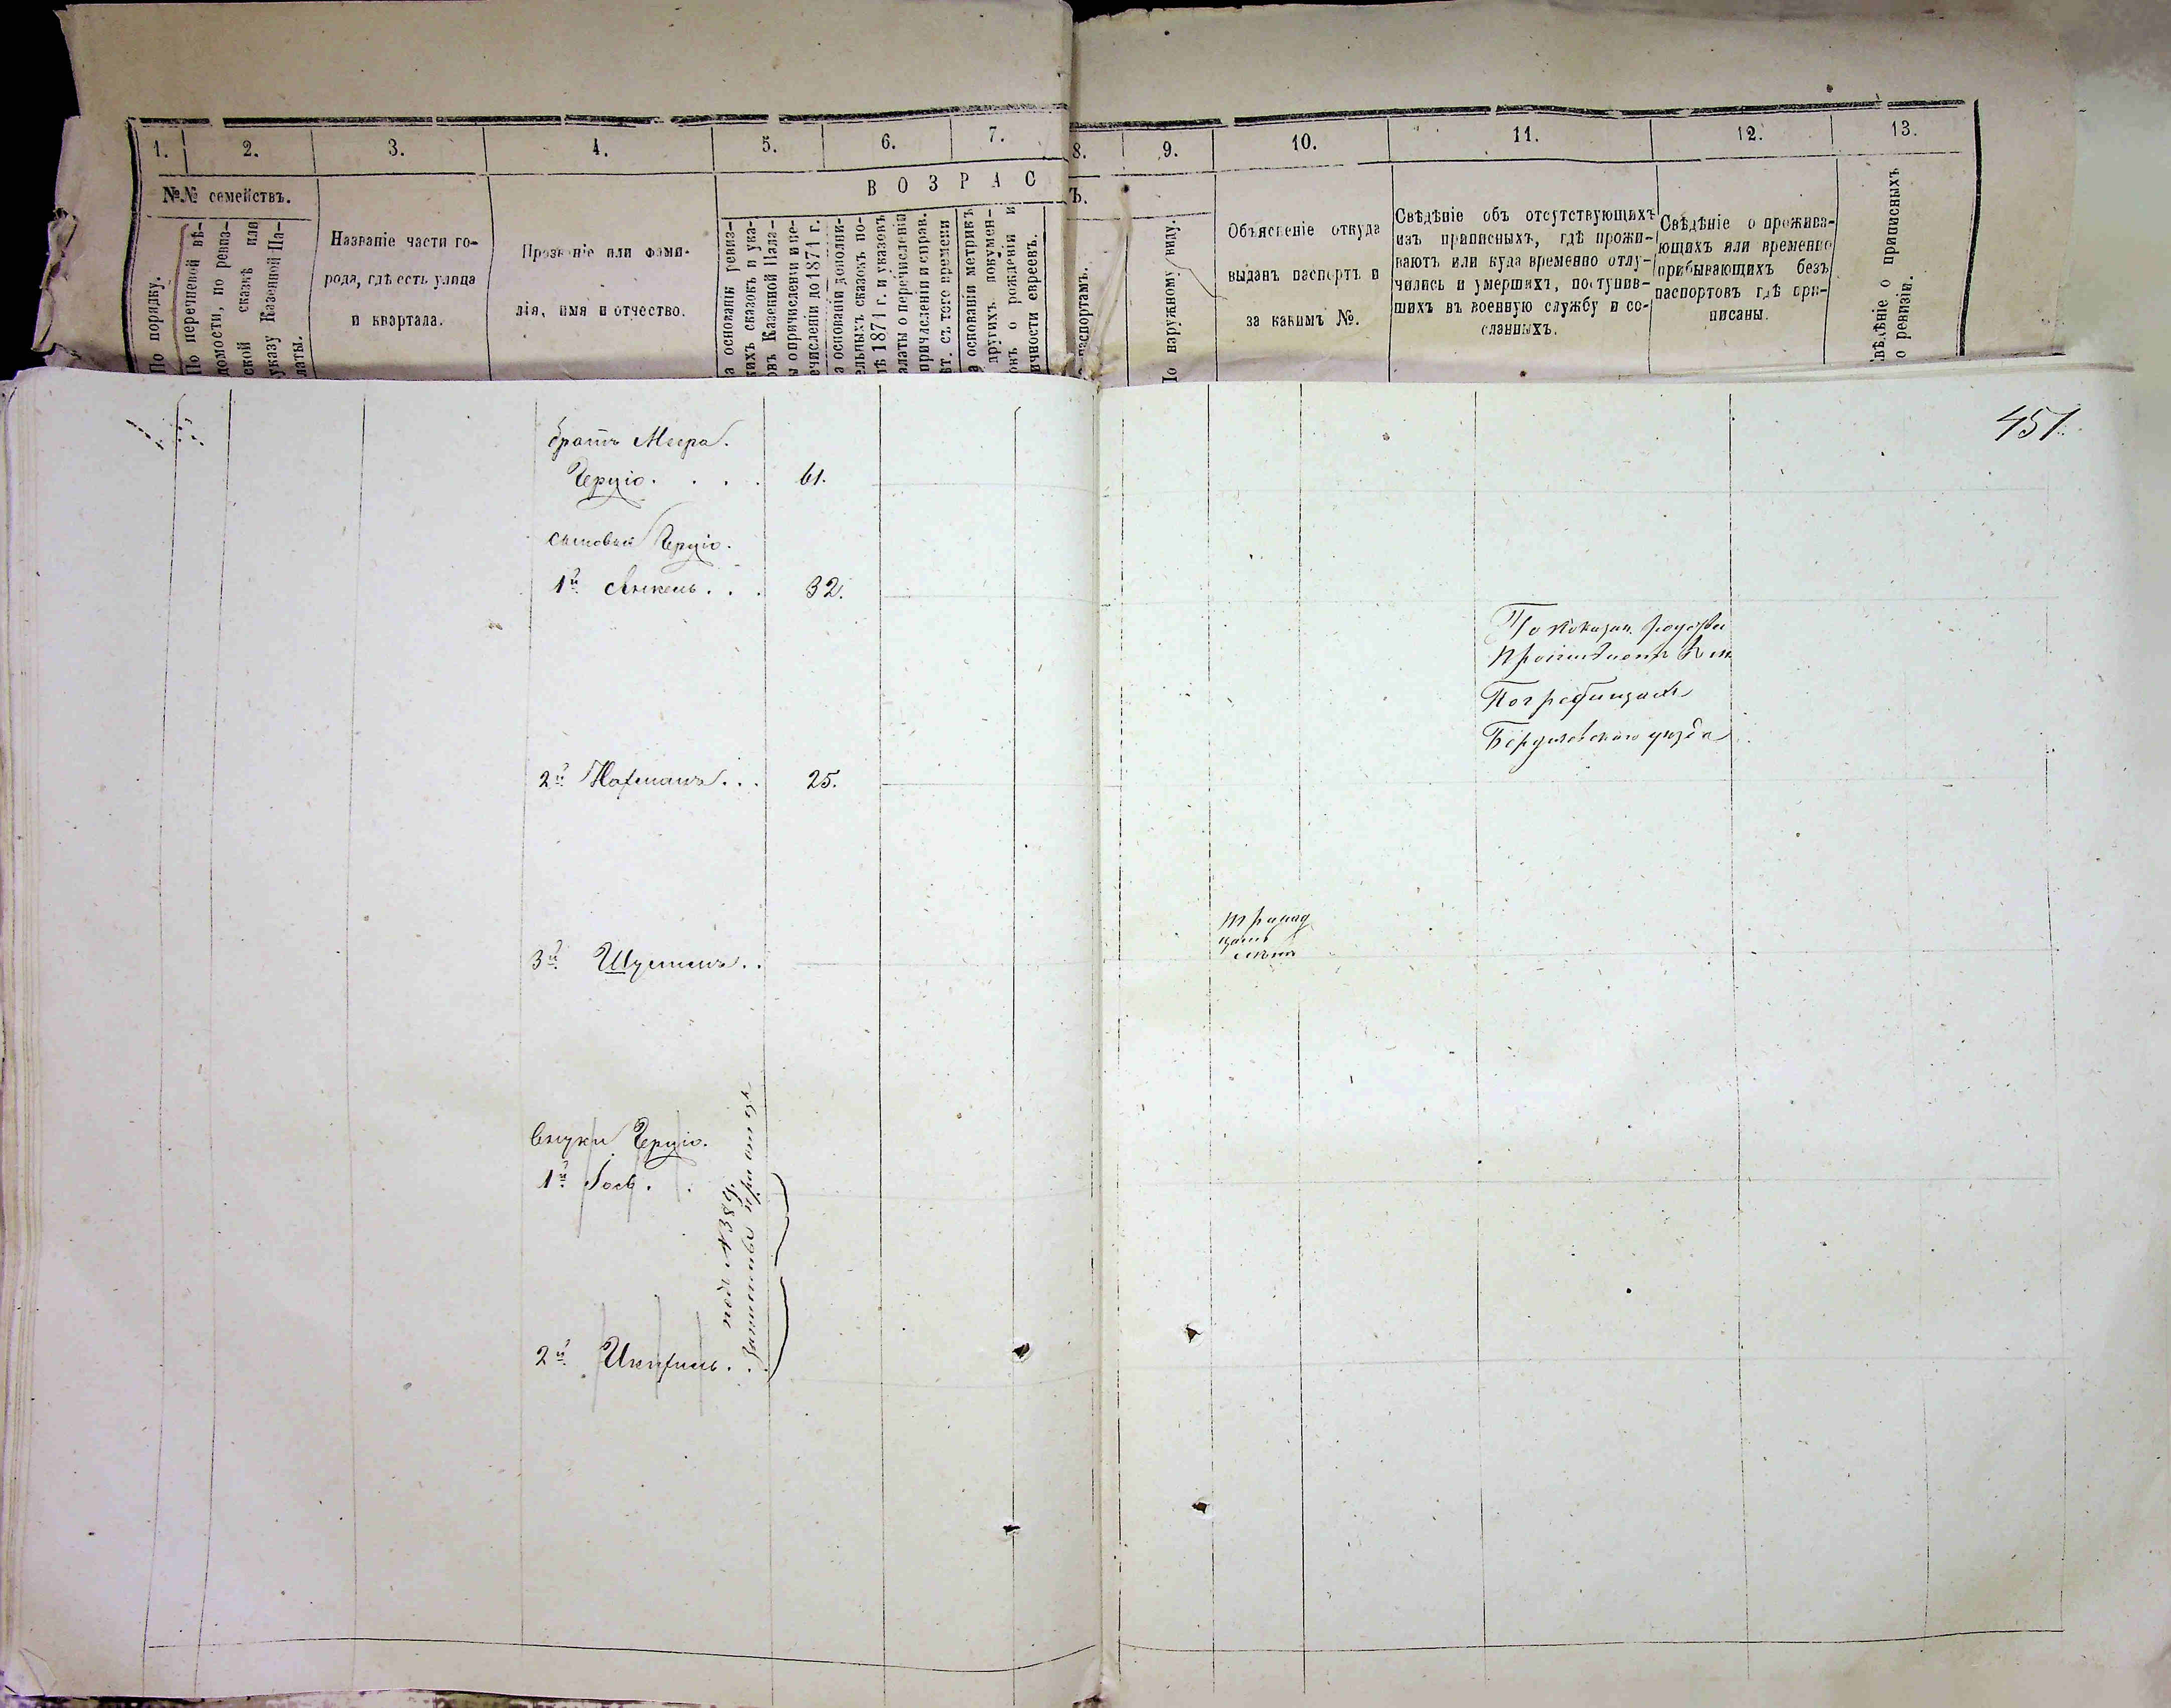 1.
2.
3.
4.
5.
6.
7.
8.
9.
10.
11.
12.
13.
№№ семействъ.
ВОЗРАС
Ъ.
По порядку.
По перечневой вѣ-
домости, по ревиз-
ской сказкѣ или
указу Казенной Па-
латы.
Названіе части го-
рода, гдѣ есть улица
и квартала.
Прозваніе или фами-
лія, имя и отчество.
а основаніи ревиз-
кихъ сказокъ и ука-
овъ Казенной Пала-
ы о причисленіи и пе-
ечисленіи до 1871 г.
а основаніи дополни-
ельныхъ сказокъ по-
лѣ 1871 г. и указовъ
алаты о перечисленіи
причисленіи и справ.
ѣт. съ того времени
а основаніи метрикъ
другихъ докумен-
овъ о рожденіи и
ичности евреевъ.
паспортамъ.
По наружному виду.
Объясненіе откуда
выданъ паспортъ и
за какимъ №.
Свѣдѣніе объ отсутствующихъ
изъ приписныхъ, гдѣ прожи-
ваютъ или куда временно отлу-
чились и умершихъ, поступив-
шихъ въ военную службу и со-
сланныхъ.
Свѣдѣніе о прожива-
ющихъ или временно
прибывающихъ безъ
паспортовъ гдѣ при-
писаны.
Свѣдѣніе о приписныхъ
о ревизіи.
451.
братъ Меера.
Герціо. . . . 61.
сыновья Герціо.
1й Янкель. . . 32.
По показан.
Погребищахъ
Бердичевскаго уѣзда
2й Нахманъ. . . 25.
3й Шулимъ. .
тринад
цать
лѣтъ
внуки Герціо.
1й Іось. .
2й
подъ №389.
Записаны при отцѣ